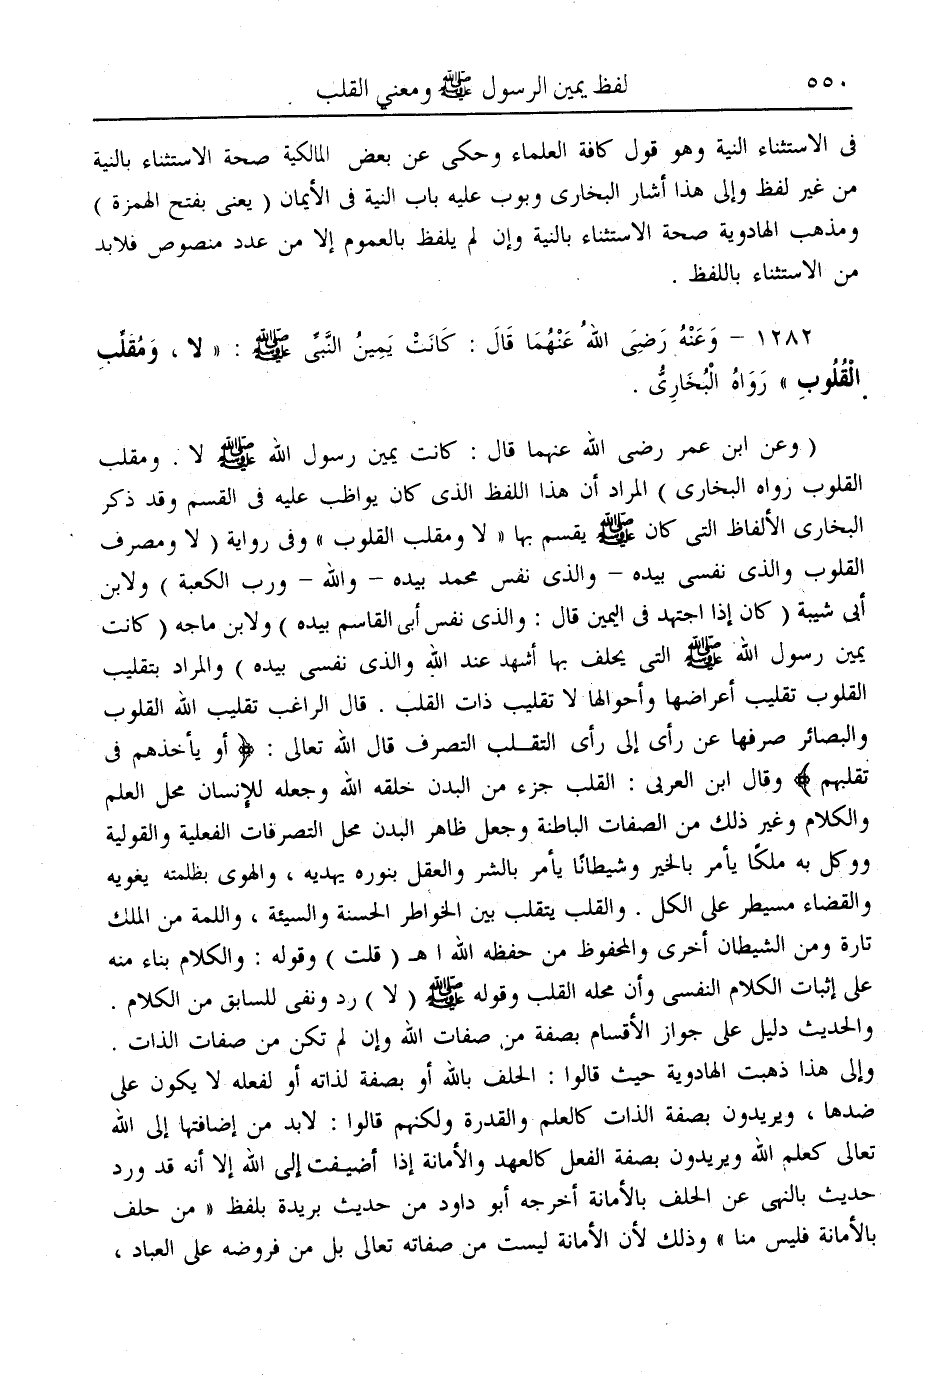 ٥٥٠ لفظ يمين الرسول ﷺ ومعني القلب
فى الاستثناء النية وهو قول كافة العلماء وحكى عن بعض المالكية صحة الاستثناء بالنية
من غير لفظ وإلى هذا أشار البخارى وبوب عليه باب النية فى الأيمان ( يعنى بفتح الهمزة )
ومذهب الهادوية صحة الاستثناء بالنية وإن لم يلفظ بالعموم إلا من عدد منصوص فلابد
من الاستثناء باللفظ .
١٢٨٢ – وَعَنْهُ رَضِىَ اللهُ عَنْهُمَا قَالَ : كَانَتْ يَمِينُ النَّبِىِّ ﷺ : « لا ، وَمُقَلِّبِ
الْقُلُوبِ » رَوَاهُ الْبُخَارِىُّ .
( وعن ابن عمر رضى الله عنهما قال : كانت يمين رسول الله ﷺ لا . ومقلب
القلوب رواه البخارى ) المراد أن هذا اللفظ الذى كان يواظب عليه فى القسم وقد ذكر
البخارى الألفاظ التى كان ﷺ يقسم بها « لا ومقلب القلوب » وفى رواية ( لا ومصرف
القلوب والذى نفسى بيده – والذى نفس محمد بيده – والله – ورب الكعبة ) ولابن
أبى شيبة ( كان إذا اجتهد فى اليمين قال : والذى نفس أبى القاسم بيده ) ولابن ماجه ( كانت
يمين رسول الله ﷺ التى يحلف بها أشهد عند الله والذى نفسى بيده ) والمراد بتقليب
القلوب تقليب أعراضها وأحوالها لا تقليب ذات القلب . قال الراغب تقليب الله القلوب
والبصائر صرفها عن رأى إلى رأى التقلب التصرف قال الله تعالى : ﴿ أو يأخذهم فى
تقلبهم ﴾ وقال ابن العربى : القلب جزء من البدن خلقه الله وجعله للإنسان محل العلم
والكلام وغير ذلك من الصفات الباطنة وجعل ظاهر البدن محل التصرفات الفعلية والقولية
ووكل به ملكًا يأمر بالخير وشيطانًا يأمر بالشر والعقل بنوره يهديه ، والهوى بظلمته يغويه
والقضاء مسيطر على الكل . والقلب يتقلب بين الخواطر الحسنة والسيئة ، واللمة من الملك
تارة ومن الشيطان أخرى والمحفوظ من حفظه الله ا هـ ( قلت ) وقوله : والكلام بناء منه
على إثبات الكلام النفسى وأن محله القلب وقوله ﷺ ( لا ) رد ونفى للسابق من الكلام .
والحديث دليل على جواز الأقسام بصفة من صفات الله وإن لم تكن من صفات الذات .
وإلى هذا ذهبت الهادوية حيث قالوا : الحلف بالله أو بصفة لذاته أو لفعله لا يكون على
ضدها ، ويريدون بصفة الذات كالعلم والقدرة ولكنهم قالوا : لابد من إضافتها إلى الله
تعالى كعلم الله ويريدون بصفة الفعل كالعهد والأمانة إذا أضيفت إلى الله إلا أنه قد ورد
حديث بالنهى عن الحلف بالأمانة أخرجه أبو داود من حديث بريدة بلفظ « من حلف
بالأمانة فليس منا » وذلك لأن الأمانة ليست من صفاته تعالى بل من فروضه على العباد ،